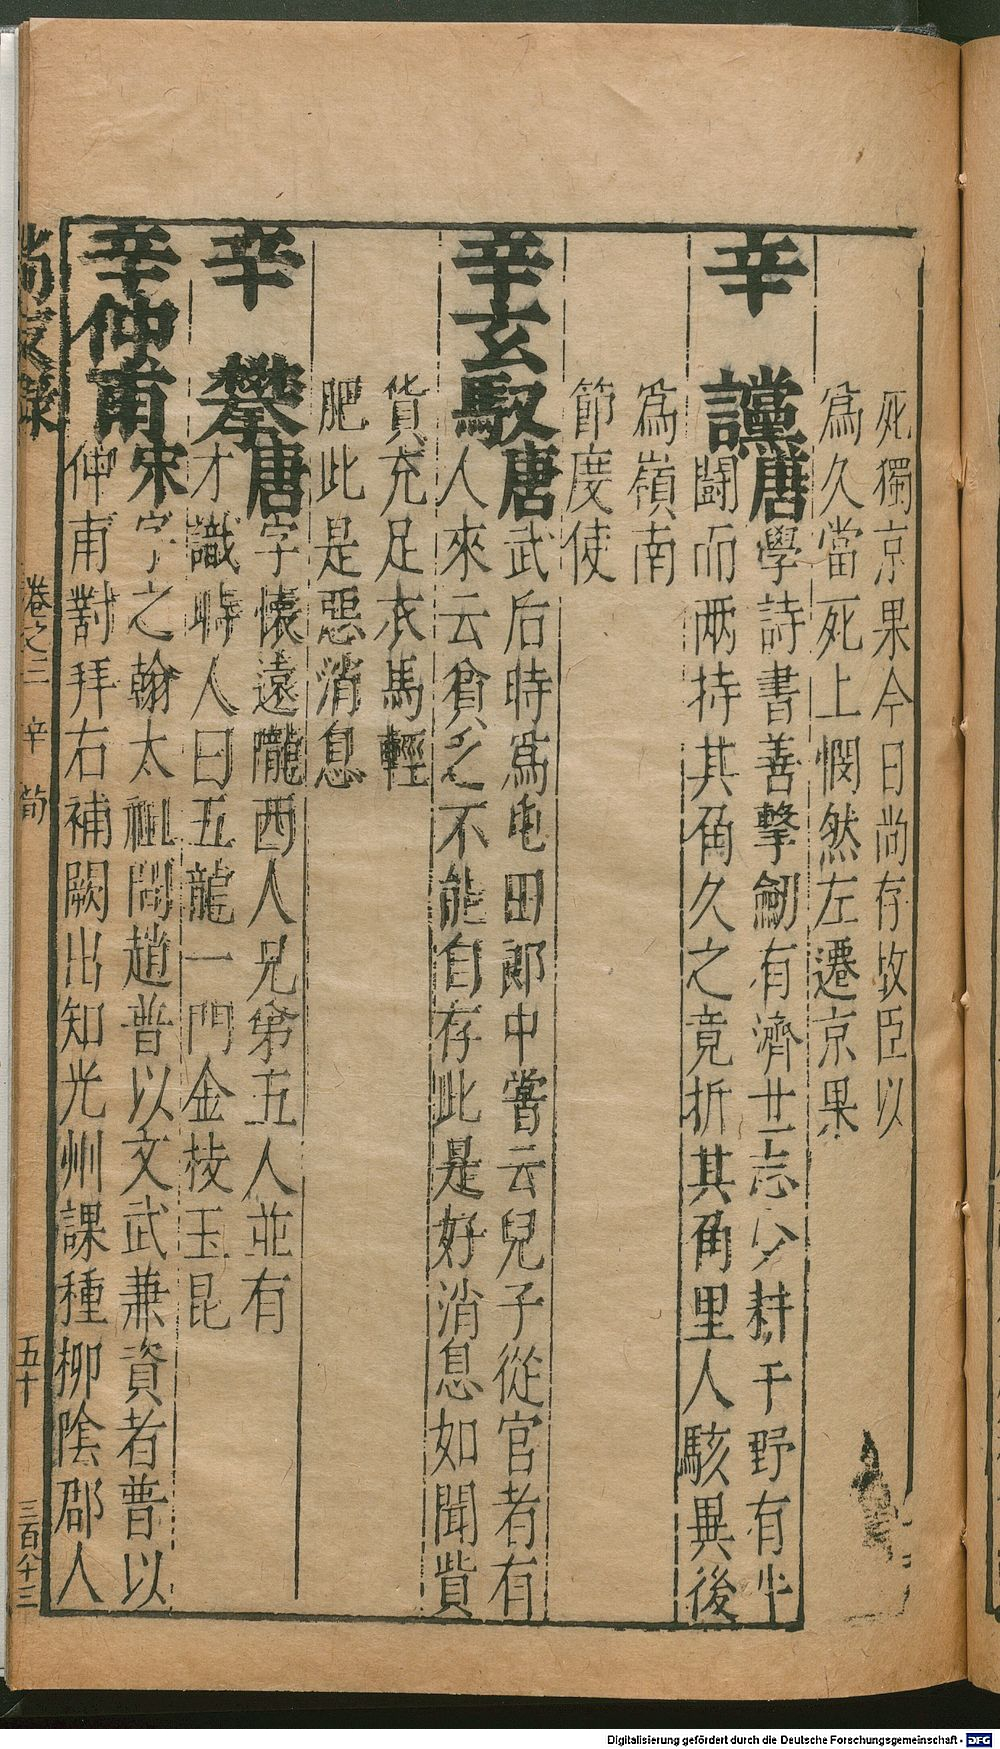 死獨京杲今日尚存故臣以
為久當死上憫然左遷京杲
辛 讜唐學詩書善擊劒有濟世志少耕于野有牛
鬪而兩持其角久之竟折其角里人駭異後
為嶺南
節度使
辛玄馭唐武后時為屯田郎中嘗云兒子從官者有
人來云貧乏不能自存此是好消息如聞貲
貨充足衣馬輕
肥此是惡消息
辛 攀唐字懷遠隴西人兄弟五人並有
才識時人曰五龍一門金棱玉昆
辛仲甫宋字之翰太祖問趙普以文武兼資者普以
仲甫對拜右補闕出知光州課種柳陰郡人
尚友錄 卷之三 辛 荀 五十 三百八十三
Digitalisierung gefördert durch die Deutsche Forschungsgemeinschaft - DFG